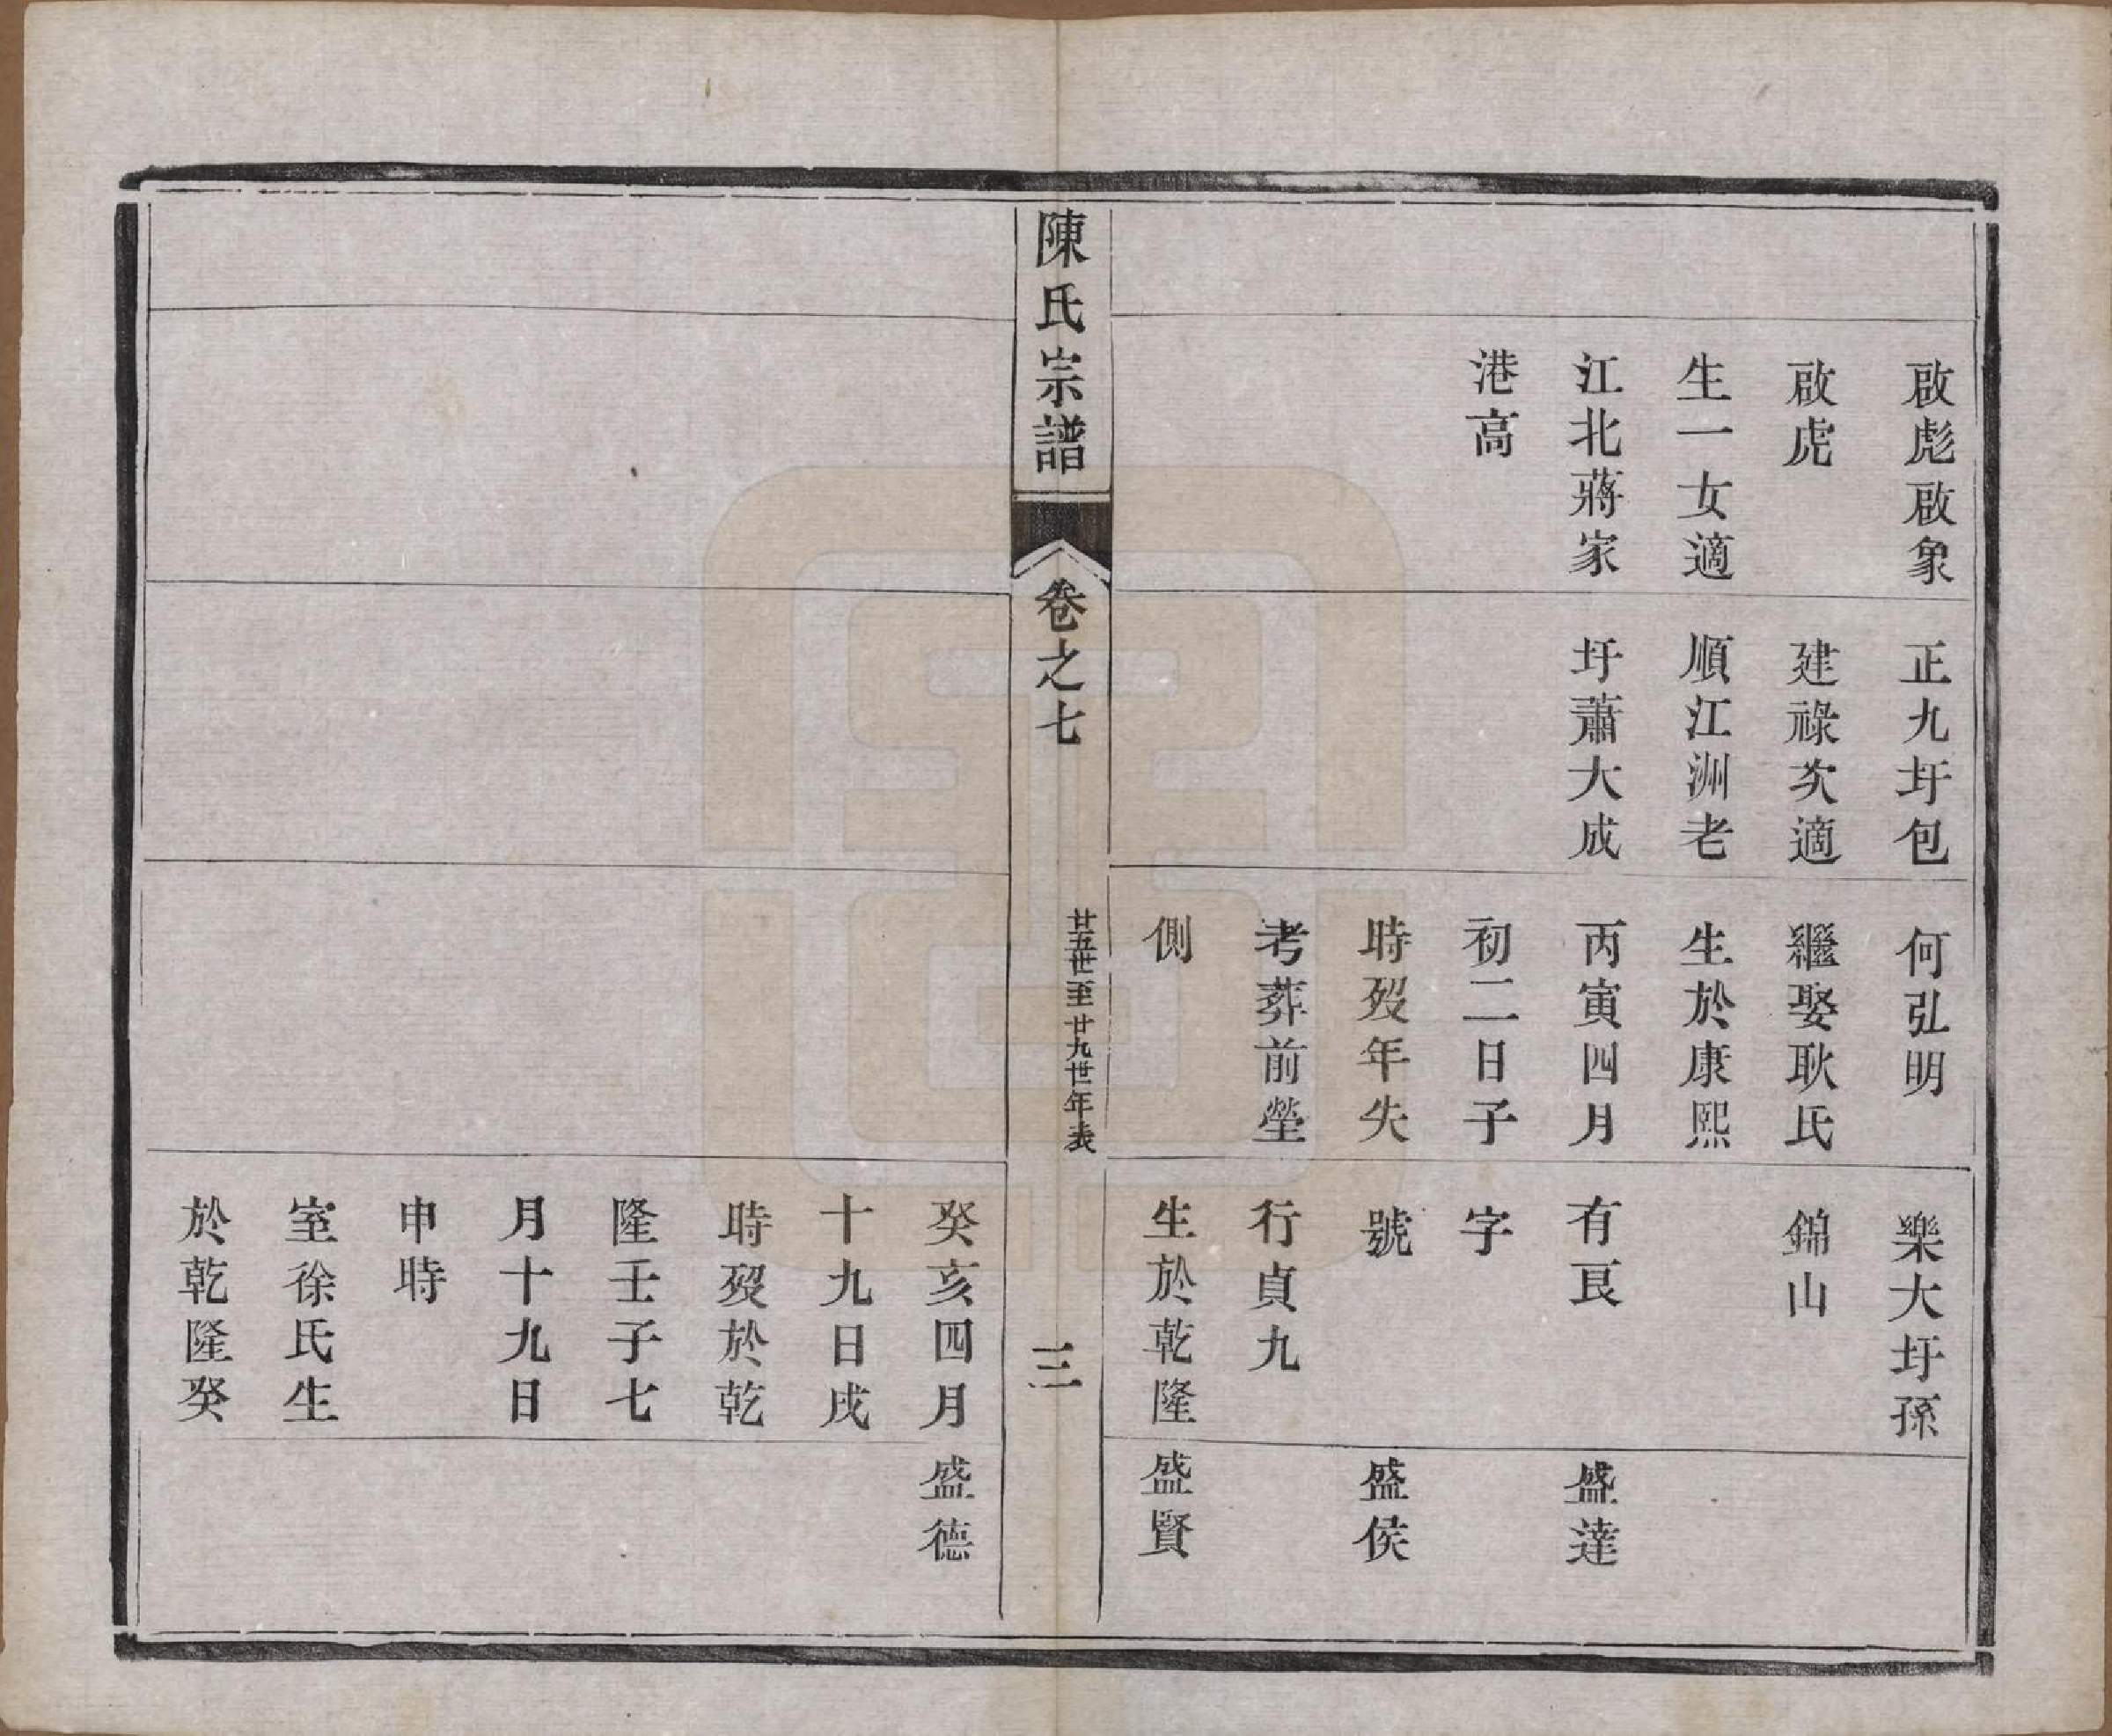 啟彪啟象
啟虎
生一女適
江北蔣家
港高
正九圩包
建祿次適
順江洲老
圩蕭大成
何弘明
繼娶耿氏
生於康熙
丙寅四月
初二日子
時歿年失
考葬前塋
側
樂大圩孫
錦山
有良
字
號
行貞九
生於乾隆
盛達
盛侯
盛賢
陳氏宗譜
卷之七
廿五世至廿九世年表
三
癸亥四月
十九日戌
時歿於乾
隆壬子七
月十九日
申時
室徐氏生
於乾隆癸
盛德